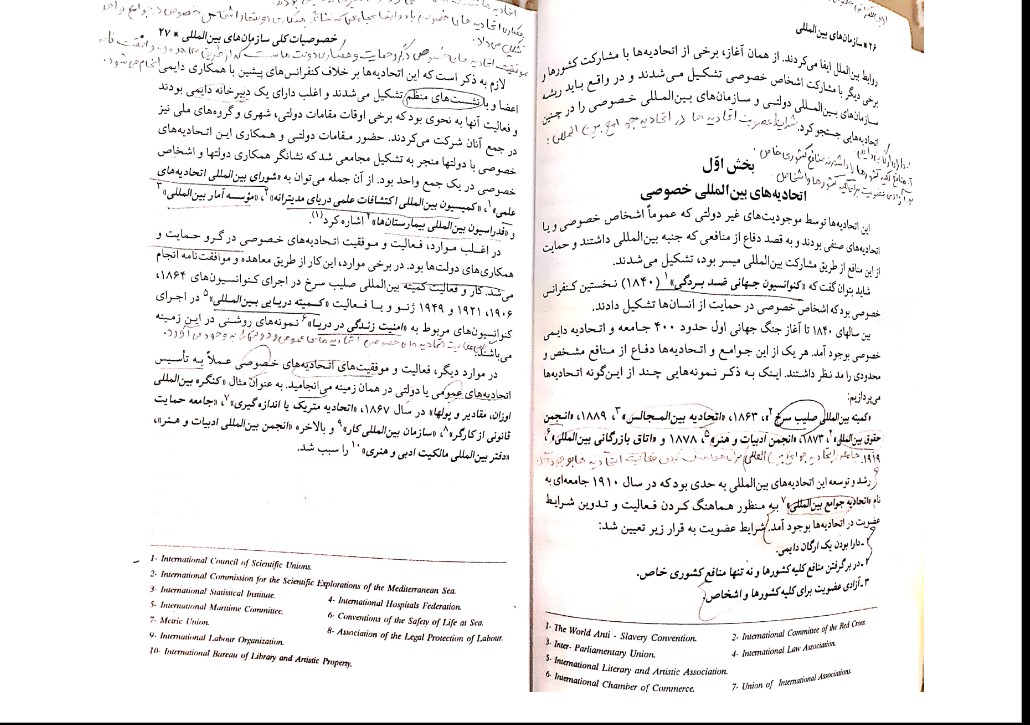 ۲۶ * سازمان‌های بین‌المللی
روابط بین‌الملل ایفا می‌کردند. از همان آغاز، برخی از اتحادیه‌ها با مشارکت کشورها و
برخی دیگر با مشارکت اشخاص خصوصی تشکیل می‌شدند و در واقع باید ریشه
سازمان‌های بین‌المللی دولتی و سازمان‌های بین‌المللی خصوصی را در چنین
اتحادیه‌هایی جستجو کرد.
بخش اوّل
اتحادیه‌های بین‌المللی خصوصی
این اتحادیه‌ها توسط موجودیت‌های غیر دولتی که عموماً اشخاص خصوصی و یا
اتحادیه‌های صنفی بودند و به قصد دفاع از منافعی که جنبه بین‌المللی داشتند و حمایت
از این منافع از طریق مشارکت بین‌المللی میسر بود، تشکیل می‌شدند.
شاید بتوان گفت که «کنوانسیون جهانی ضد بردگی»۱ (۱۸۴۰) نخستین کنفرانس
خصوصی بود که اشخاص خصوصی در حمایت از انسان‌ها تشکیل دادند.
بین سالهای ۱۸۴۰ تا آغاز جنگ جهانی اول حدود ۴۰۰ جامعه و اتحادیه دایمی
خصوصی بوجود آمد. هر یک از این جوامع و اتحادیه‌ها دفاع از منافع مشخص و
محدودی را مد نظر داشتند. اینک به ذکر نمونه‌هایی چند از این‌گونه اتحادیه‌ها
می‌پردازیم:
«کمیته بین‌المللی صلیب سرخ»۲، ۱۸۶۳، «اتحادیه بین‌المجالس»۳، ۱۸۸۹، «انجمن
حقوق بین‌الملل»۴، ۱۸۷۳، «انجمن ادبیات و هنر»۵، ۱۸۷۸ و «اتاق بازرگانی بین‌المللی»۶،
۱۹۱۹.
رشد و توسعه این اتحادیه‌های بین‌المللی به حدی بود که در سال ۱۹۱۰ جامعه‌ای به
نام «اتحادیه جوامع بین‌المللی»۷ به منظور هماهنگ کردن فعالیت و تدوین شرایط
عضویت در اتحادیه‌ها بوجود آمد. شرایط عضویت به قرار زیر تعیین شد:
۱- دارا بودن یک ارگان دایمی.
۲- در برگرفتن منافع کلیه کشورها و نه تنها منافع کشوری خاص.
۳- آزادی عضویت برای کلیه کشورها و اشخاص.
1- The World Anti - Slavery Convention.
2- International Committee of the Red Cross
3- Inter- Parliamentary Union.
4- International Law Association.
5- International Literary and Artistic Association.
6- International Chamber of Commerce.
7- Union of International Associations.
خصوصیات کلی سازمان‌های بین‌المللی * ۲۷
لازم به ذکر است که این اتحادیه‌ها بر خلاف کنفرانس‌های پیشین با همکاری دایمی
اعضا و با نشست‌های منظم تشکیل می‌شدند و اغلب دارای یک دبیرخانه دایمی بودند
و فعالیت آنها به نحوی بود که برخی اوقات مقامات دولتی، شهری و گروه‌های ملی نیز
در جمع آنان شرکت می‌کردند. حضور مقامات دولتی و همکاری این اتحادیه‌های
خصوصی با دولتها منجر به تشکیل مجامعی شد که نشانگر همکاری دولتها و اشخاص
خصوصی در یک جمع واحد بود. از آن جمله می‌توان به «شورای بین‌المللی اتحادیه‌های
علمی»۱، «کمیسیون بین‌المللی اکتشافات علمی دریای مدیترانه»۲، «مؤسسه آمار بین‌المللی»۳
و «فدراسیون بین‌المللی بیمارستان‌ها»۴ اشاره کرد(۱)
در اغلب موارد، فعالیت و موفقیت اتحادیه‌های خصوصی در گرو حمایت و
همکاری‌های دولت‌ها بود. در برخی موارد، این کار از طریق معاهده و موافقت‌نامه انجام
می‌شد. کار و فعالیت کمیته بین‌المللی صلیب سرخ در اجرای کنوانسیون‌های ۱۸۶۴،
۱۹۰۶، ۱۹۲۱ و ۱۹۴۹ ژنو و یا فعالیت «کمیته دریایی بین‌المللی»۵ در اجرای
کنوانسیون‌های مربوط به «امنیت زندگی در دریا»۶ نمونه‌های روشنی در این زمینه
می‌باشند.
در موارد دیگر، فعالیت و موفقیت‌های اتحادیه‌های خصوصی عملاً به تأسیس
اتحادیه‌های عمومی یا دولتی در همان زمینه می‌انجامید. به عنوان مثال «کنگره بین‌المللی
اوزان، مقادیر و پولها» در سال ۱۸۶۷، «اتحادیه متریک یا اندازه‌گیری»۷، «جامعه حمایت
قانونی از کارگر»۸، «سازمان بین‌المللی کار»۹ و بالاخره «انجمن بین‌المللی ادبیات و هنر»،
«دفتر بین‌المللی مالکیت ادبی و هنری»۱۰ را سبب شد.
1- International Council of Scientific Unions.
2- International Commission for the Scientific Explorations of the Mediterranean Sea.
3- International Statistical Institute.
4- International Hospitals Federation.
5- International Maritime Committee.
6- Conventions of the Safety of Life at Sea.
7- Metric Union.
8- Association of the Legal Protection of Labour.
9- International Labour Organization.
10- International Bureau of Library and Artistic Property.